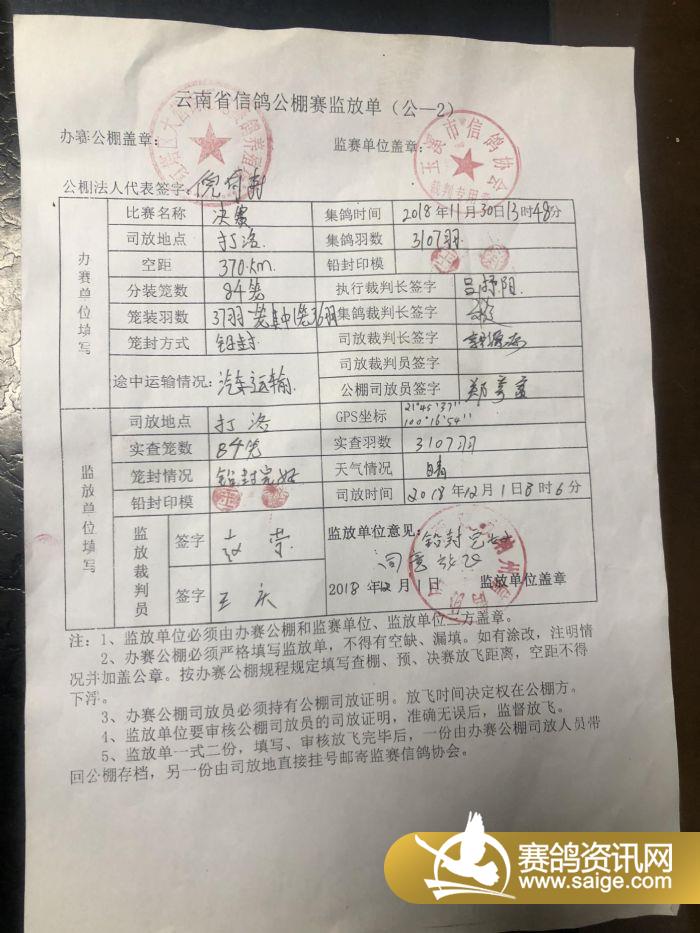 云南省信鸽公棚赛监放单（公—2）
办赛公棚盖章：
监赛单位盖章：
玉溪市信鸽协会
裁判专用章
公棚法人代表签字：
办赛单位填写
比赛名称 决赛 集鸽时间 2018年11月30日13时48分
司放地点 打洛. 集鸽羽数 3107羽.
空距 370.Km. 铅封印模
分装笼数 84笼 执行裁判长签字
笼装羽数 37羽 其中1笼36羽 集鸽裁判长签字
笼封方式 铅封. 司放裁判长签字
司放裁判员签字
途中运输情况：汽车运输. 公棚司放员签字
监放单位填写
司放地点 打洛 GPS坐标 21°45'37'' 100°16'54''
实查笼数 84笼 实查羽数 3107羽
笼封情况 铅封完好 天气情况 晴
铅封印模 司放时间 2018年12月1日8时6分
监放裁判员
签字
签字 王庆
监放单位意见：铅封完好
同意放飞
2018年12月1日 监放单位盖章
注：1、监放单位必须由办赛公棚和监赛单位、监放单位三方盖章。
2、办赛公棚必须严格填写监放单，不得有空缺、漏填。如有涂改，注明情
况并加盖公章。按办赛公棚规程规定填写查棚、预、决赛放飞距离，空距不得
下浮。
3、办赛公棚司放员必须持有公棚司放证明。放飞时间决定权在公棚方。
4、监放单位要审核公棚司放员的司放证明，准确无误后，监督放飞。
5、监放单一式二份，填写、审核放飞完毕后，一份由办赛公棚司放人员带
回公棚存档，另一份由司放地直接挂号邮寄监赛信鸽协会。
赛鸽资讯网
www.saige.com